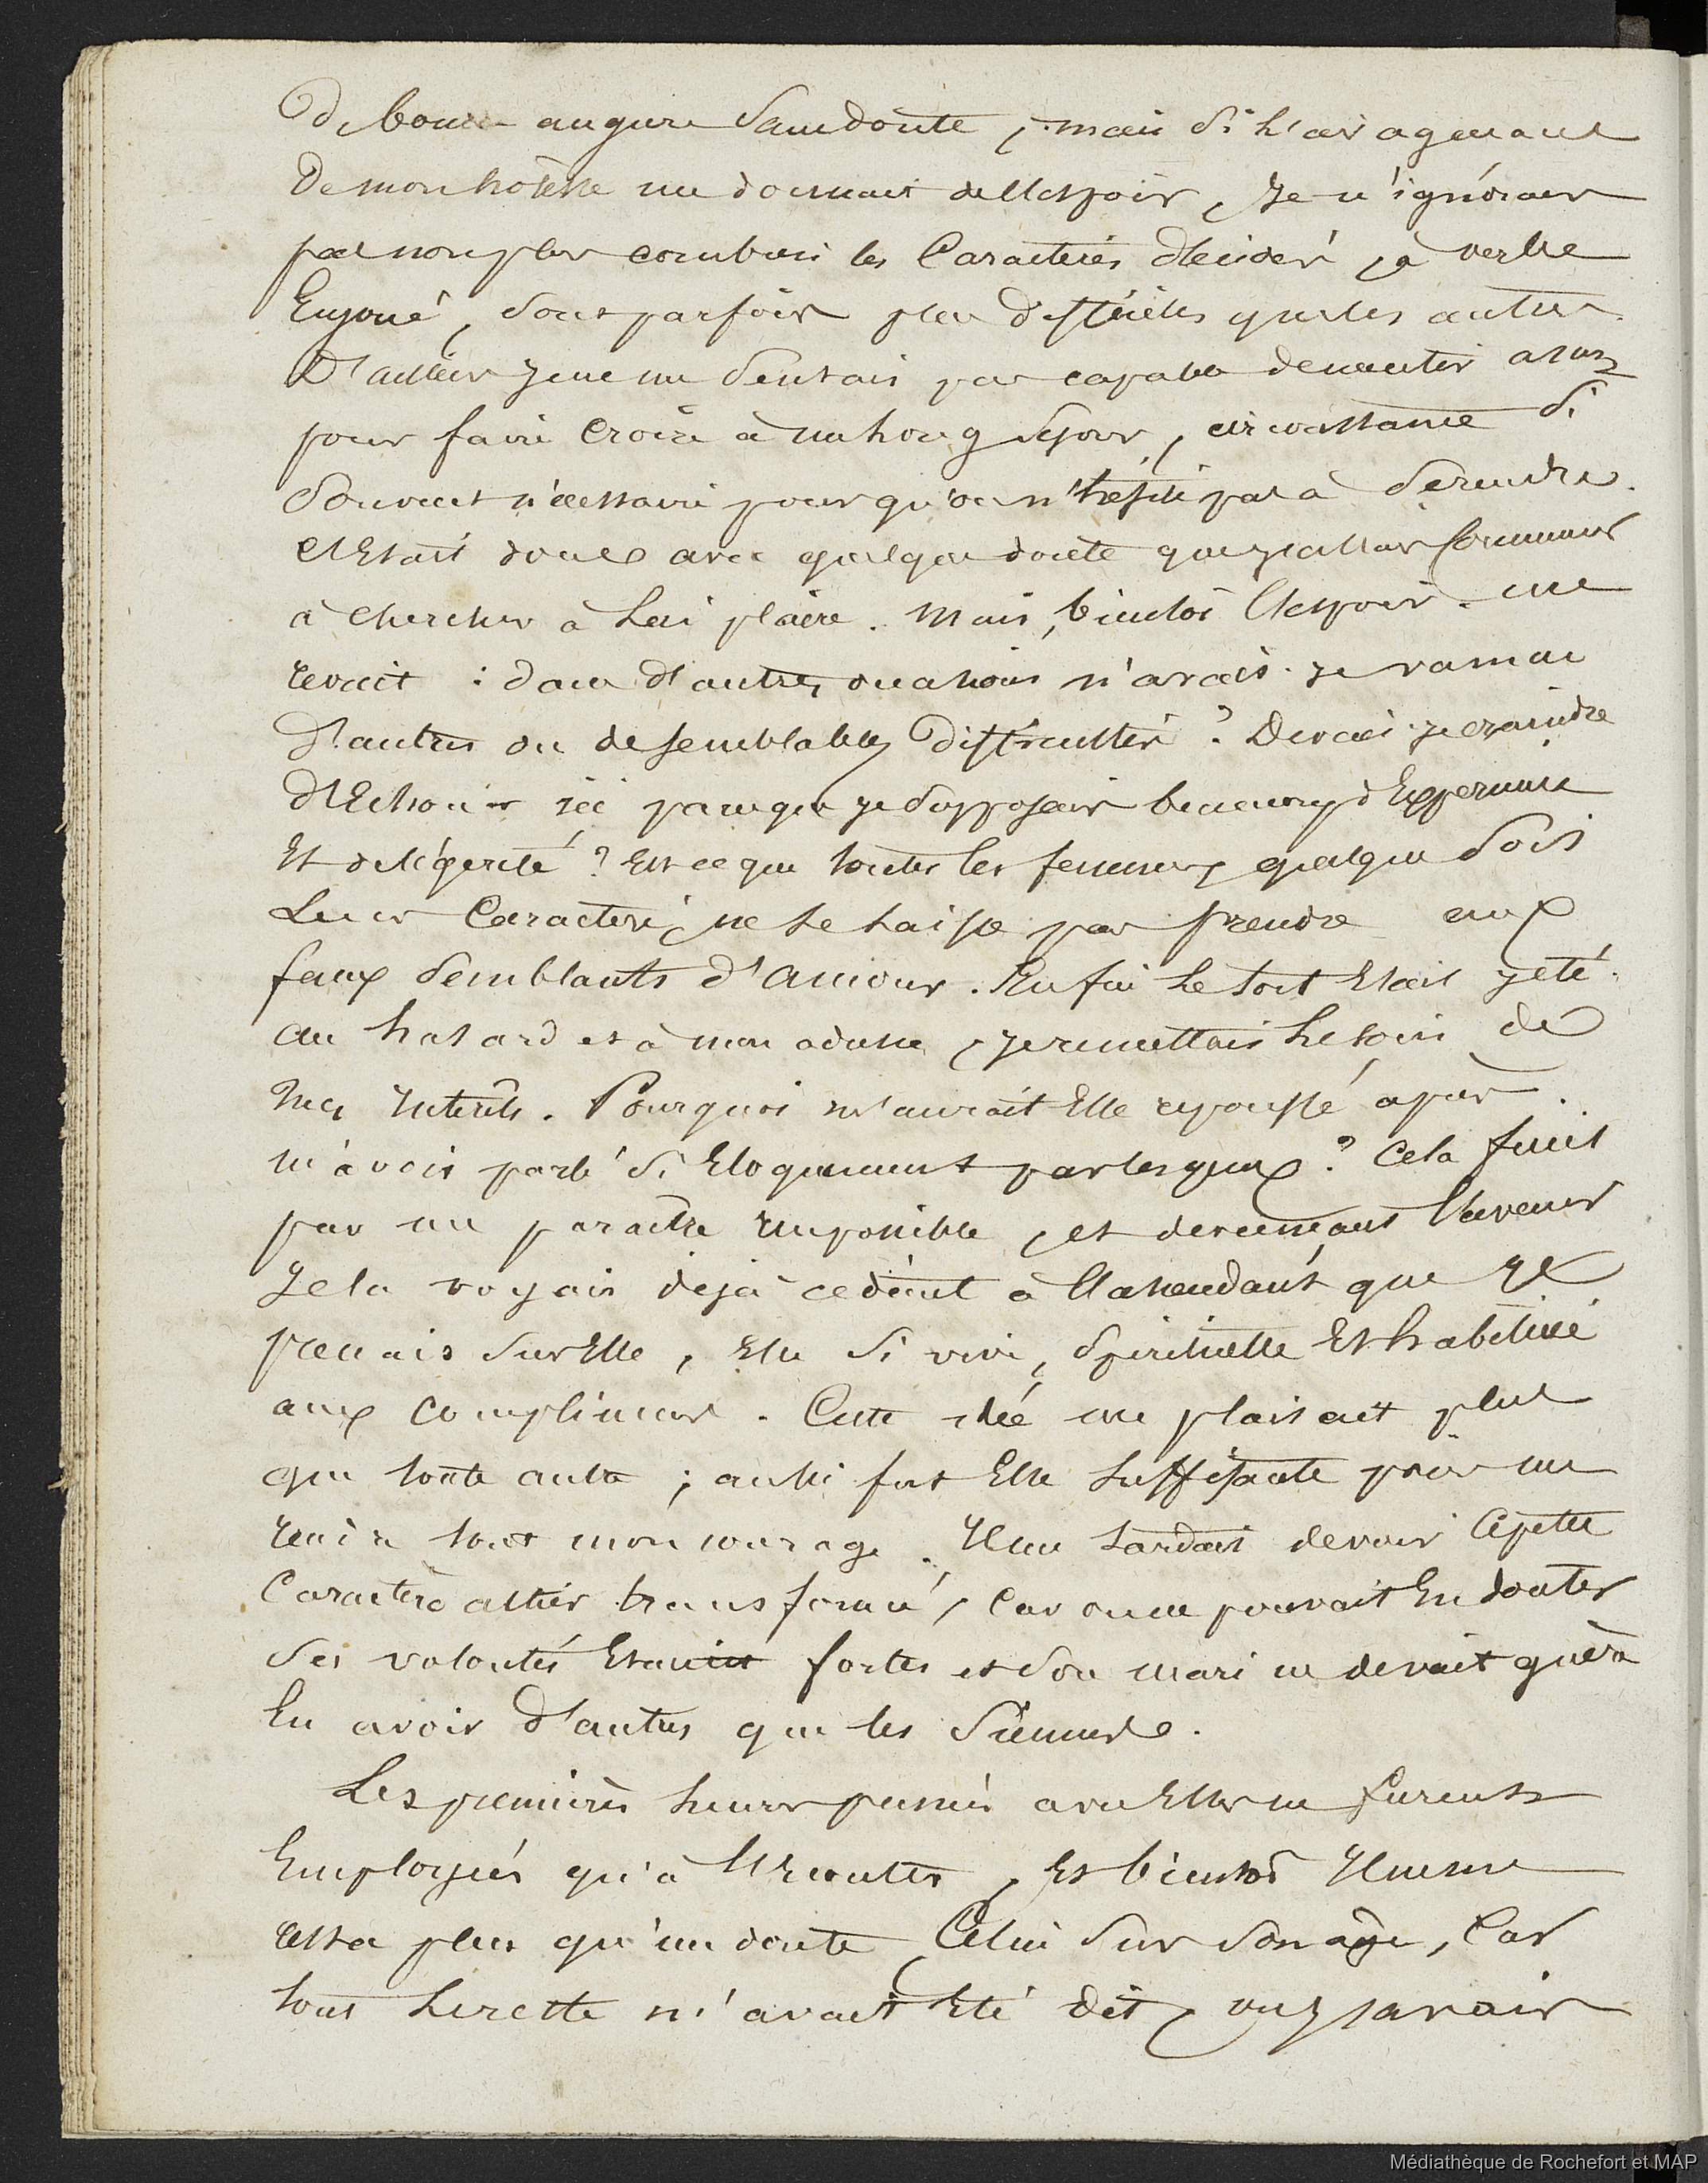 De bonne augure sans doute, mais si l'air agaçant
de mon hôtesse me donnait de l'espoir, je n'ignorais
pas non plus combien les caractères décidés, à verbe
enjoué, sont parfois plus difficiles que les autres.
D'ailleurs je ne me sentais pas capable de mentir assez
pour faire croire à un long séjour, circonstance si
souvent nécessaire pour qu'on n'hésite pas à se rendre.
C'était donc avec quelque doute que j'allais commencer
à chercher à lui plaire. Mais, bientôt l'espoir me
revint : dans d'autres occasions n'avais-je vaincu
d'autres ou de semblables difficultés ? Devais-je craindre
d'échouer ici parce que je supposais beaucoup d'expérience
et de légèreté ? Est-ce que toutes les femmes, quelque soit
leur caractère, ne se laisse pas prendre aux
faux semblants d'amour. Enfin le sort était jeté
au hasard et à mon adresse, je remettais le soin de
mes intérêts. Pourquoi m'aurait elle repoussé après
m'avoir parlé si éloquemment par les yeux ? Cela finit
par me paraître impossible, et devançant l'avenir
je la voyais déjà cédant à l'ascendant que je
prenais sur elle, elle si vive, spirituelle et habituée
aux compliments. Cette idée me plaisait plus
que toute autre ; aussi fut elle suffisante pour me
rendre tout mon courage. Il me tardait de voir ce petit
caractère altier transformé, car on ne pouvait en douter
ses volontés étaient fortes et son mari ne devait guère
en avoir d'autres que les siennes.
Les premières heures passées avec elle ne furent
employées qu'à l'écouter, et bientôt il ne me
resta plus qu'un doute celui sur son âge, car
tout le reste m'avait été dit, ou je savais